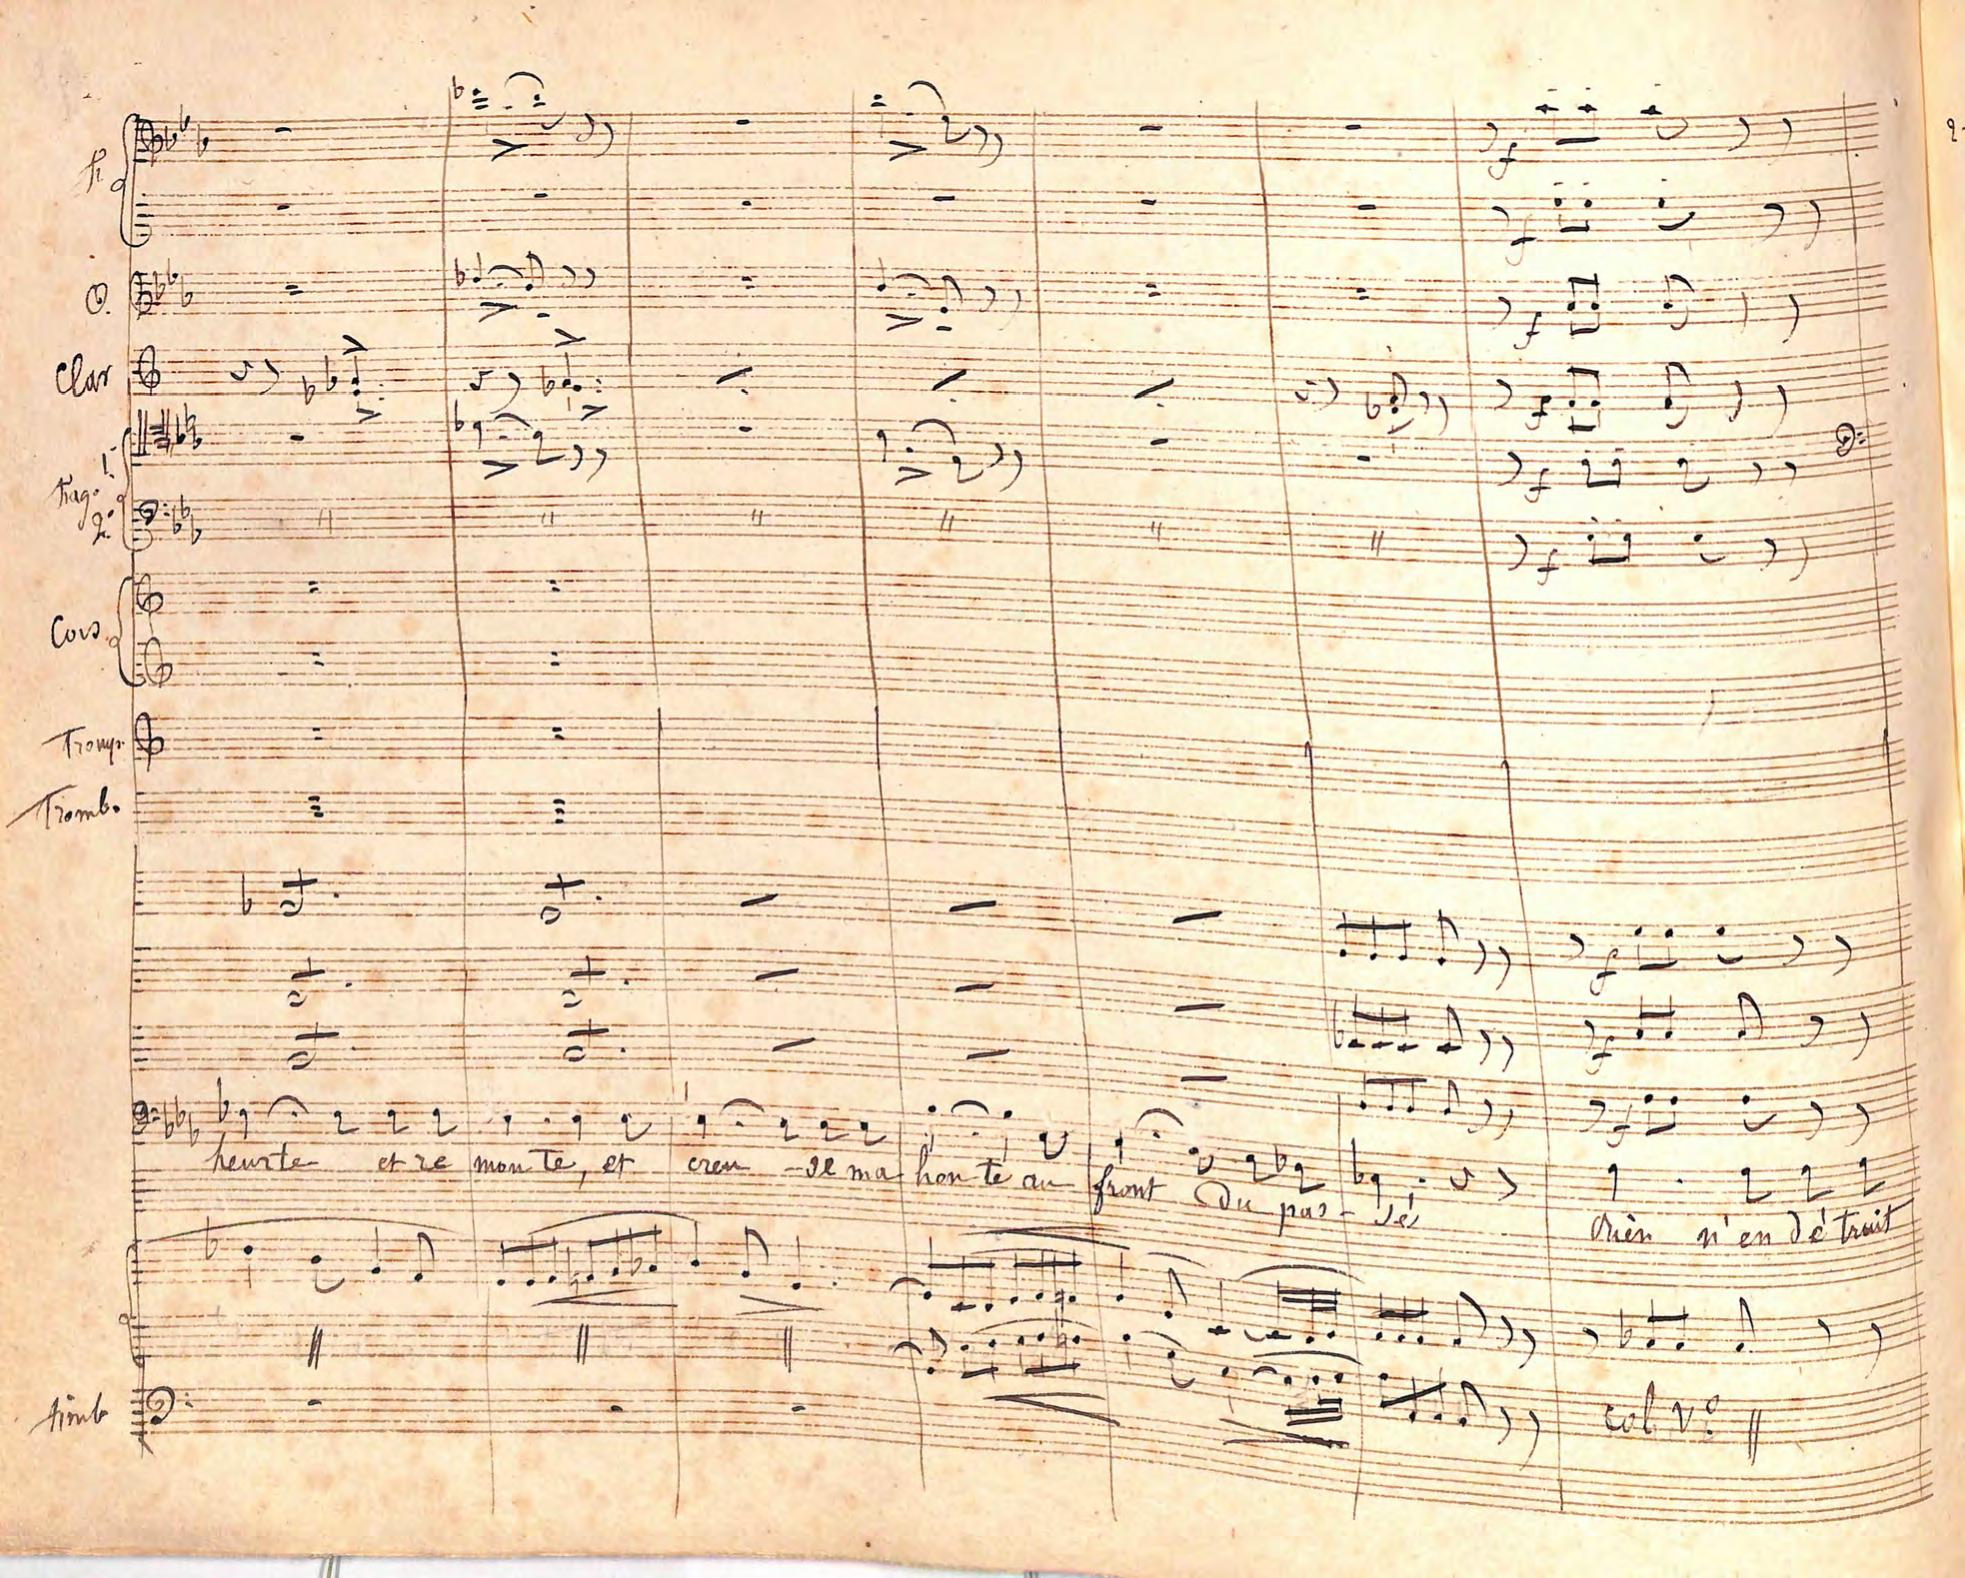 fl
O.
Clar
1º
Fag.
2º
Cors.
Tromp.
Tromb.
heurte et re monte, et creu - se ma hon te au front Du pas - sé Rien n'en dé truit
timb
col Vº
f
f
f
f
f
f
f
f
f